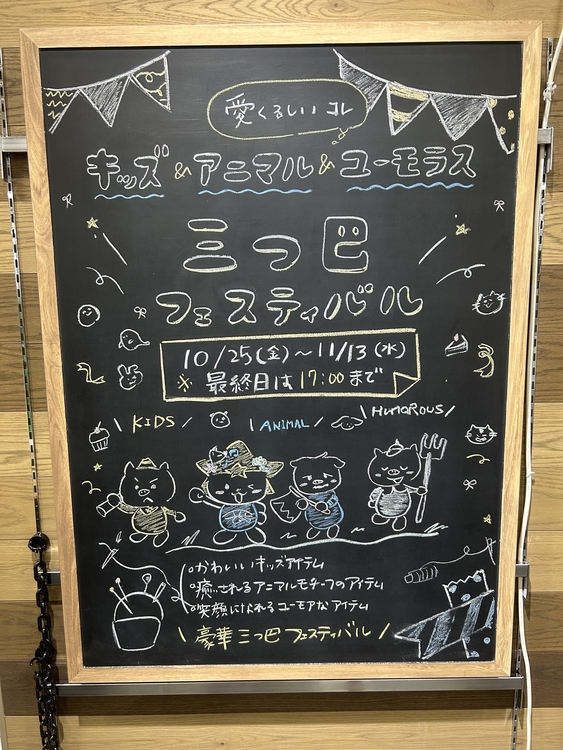 愛くるしい コレ
キッズ & アニマル & ユーモラス
三つ巴
フェスティバル
10/25(金)～11/13(水)
※ 最終日は17:00まで
\ KIDS / \ ANIMAL / \ HUMOROUS /
○かわいいキッズアイテム
○癒されるアニマルモチーフのアイテム
○笑顔になれるユーモアなアイテム
\ 豪華 三つ巴 フェスティバル /